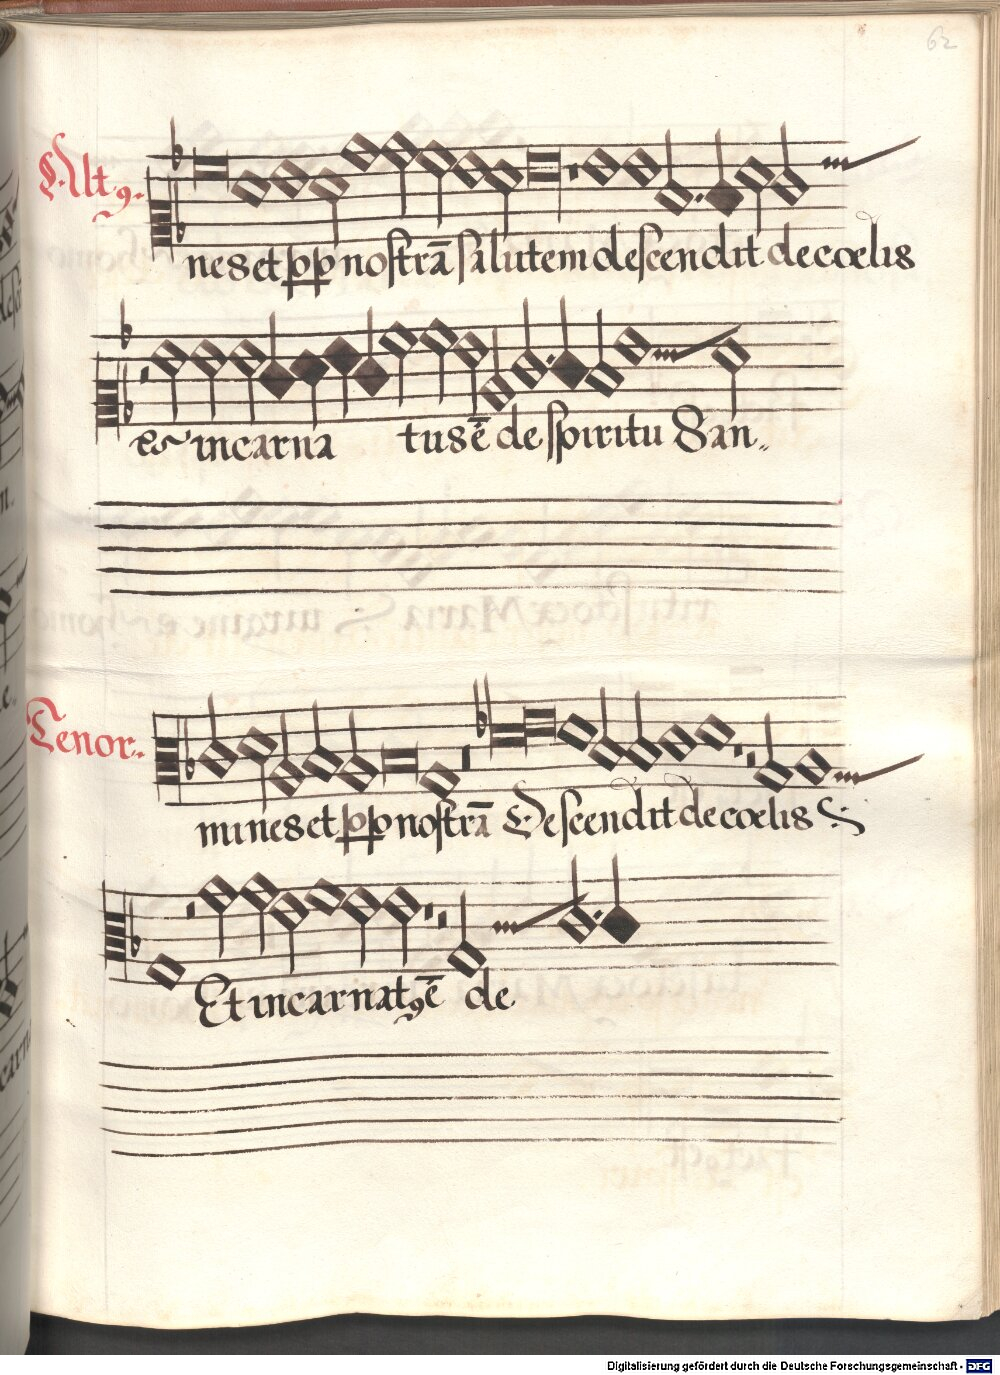 62
Alt9.
nes et pp nostrā salutem descendit de cœlis
et incarna tus ē de spiritu San
Tenor.
mines et pp nostrā Descendit de cœlis
Et incarnat9 ē de
Digitalisierung gefördert durch die Deutsche Forschungsgemeinschaft - DFG